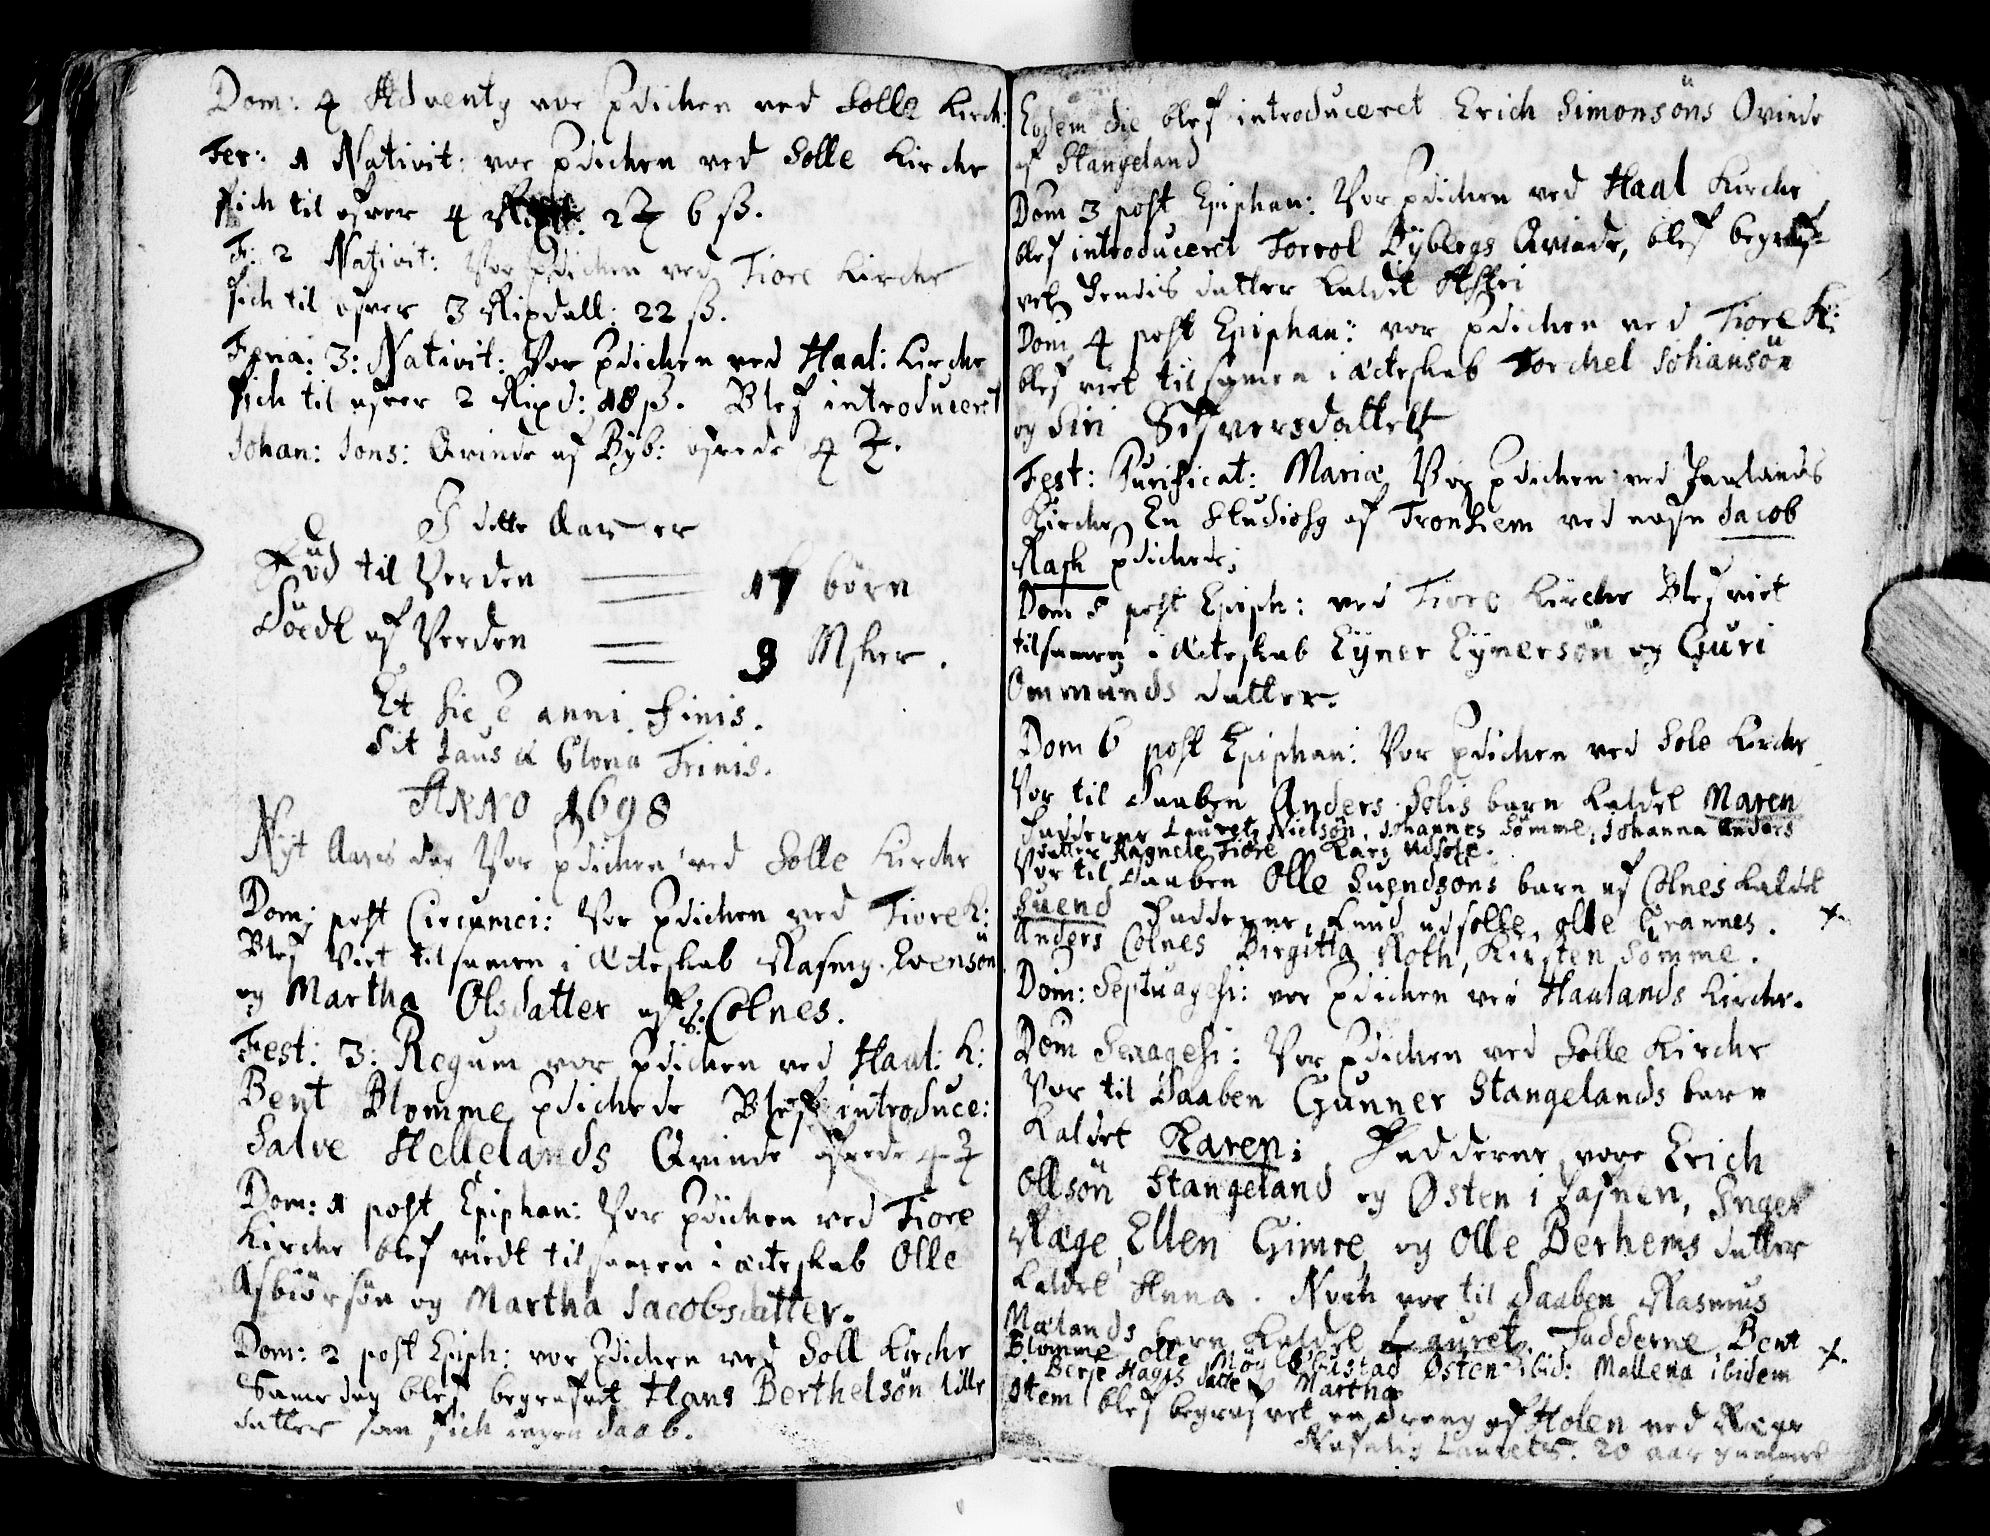 Dom: 4 Adventg vor Pdichen ved Solle Kirch:
Fer: 1 Nativit: vor Pdichen ved Solle Kirche
fich til ofver 4 2 6 ß.
F: 2 Nativit: Vor Pdichen ved Tiore Kirche
fich til ofver 3 Rixdall: 22 ß.
Feria: 3: Nativit: Vor Pdichen ved Haal: Kirche
fich til ofver 2 Rixd: 18 ß. Blef introduceret
Johan: Jons: Qvinde af Byb: ofrede 4
I dette Aar er
Fød til Verden 17 børn
Döedt af Verden 9 Msker.
Et sic e anni Finis.
Sit Laus & Gloria Trinis.
ANNO 1698
Nyt Aars dag Vor Pdichen ved Solle Kirche
Dom: post Circumci: Vor Pdichen ved Tiore K:
Blef Viet tilsamen i Ecteskab Rasmg. Evensön
og Martha Olsdatter af Colnes.
Fest: 3: Regum vor Pdichen ved Haal: K:
Bent Blomme Pdichede Blef introduce:
Salve Hellelands Qvinde ofrede 4
Dom: 1 post Epiphan: Vor Pdichen ved Tiore
Kirche blef viedt tilsamen i ecteskab Olle
Asbiörsön og Martha Jacobsdatter.
Dom: 2 post Epiph: vor Pdichen ved Soll Kirche
Same dag blef begrafvet Hans Berthelsön lille
datter som fich ingen daab.
Eodem die blef introduceret Erich Simonsöns Qvinde
af Stangeland
Dom 3 post Epiphan: Vor Pdichen ved Haal Kirche
blef introduceret Torrol Qvinde, blef begraf-
vet Hendis datter kaldet
Dom 4 post Epiphan: vor Pdichen ved Tiore K:
blef viet tilsamen i Ecteskab Torchel Johansön
og Siri Sifversdatter
Fest: Purificat: Mariæ Vor Pdichen ved
Kirche, En Studiosg af Tronhiem ved nafn Jacob
Rask Pdichet;
Dom 5 post Epiph: ved Tiore Kirche Blef viet
tilsamen i Ecteskab Eyner Eynersön og Guri
Ommunds datter.
Dom 6 post Epiphan: Vor Pdichen ved Sole Kirche
Vor til Daaben Anders Solis barn kaldet Maren
Fadderne Lauretz Nielsön, Johannes Sömme, Johanna Anders
datter Tiore Kari udsole.
Vor til Daaben Olle Suendsons barn af Colnes kaldet
Suend Fadderne, Knud udsolle, Olle Grannes. x.
Anders Colnes Birgitta Roth, Kirsten Sömme.
Dom: Septuagesi: vor Pdichen ved Haalands Kirche.
Dom Sexagesi: Vor Pdichen ved Solle Kirche
Vor til Daaben Gunner Stangelands barn
kaldet Karen; Fadderne vore Erich
Ollsön Stangeland og Østen i Inger
Ræge, Ellen Gimre, og Olle Berhems datter
kaldet Anna. Noch vor til Daaben Rasmus
Mælands barn kaldet Lauret. Fadderne Bent x.
Blomme Olle Østen ibid: Mallena ibidem
Berje Hagis datt Martha
Item blef begrafvet en dreng af Holen ved Rege
Nafnlig Laurets. 20 aar gammel